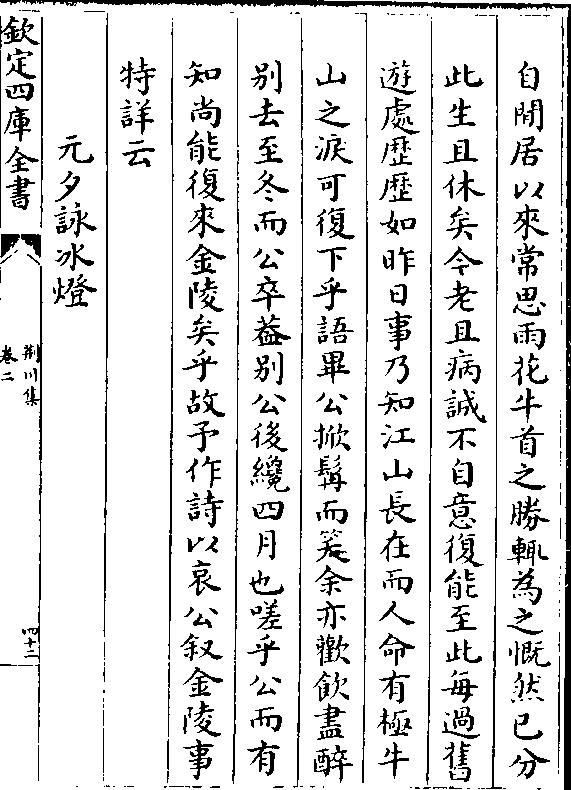 自閒居以來常思雨花牛首之勝輒為之慨然已分
此生且休矣今老且病誠不自意復能至此每過舊
遊處歴歴如昨日事乃知江山長在而人命有極牛
山之淚可復下乎語畢公掀髯而笑余亦歡飲盡醉
别去至冬而公卒葢别公後纔四月也嗟乎公而有
知尚能復來金陵矣乎故予作詩以哀公叙金陵事
特詳云
元夕詠冰燈
欽定四庫全書
荆川集
卷二
四十二